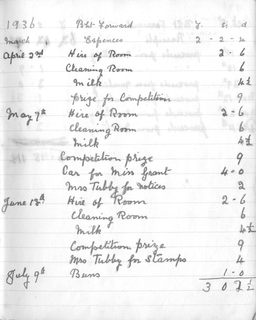 1936 Bt Forward £ s d
March Expences 2 - 2 - 4
April 2nd Hire of Room 2 - 6
Cleaning Room 6
Milk 4½
Prize for Competition 9
May 7th Hire of Room 2 - 6
Cleaning Room 6
Milk 4½
Competition prize 9
Car for Miss Grant 4 - 0
Mrs Tubby for notices 2
June 18th Hire of Room 2 - 6
Cleaning Room 6
Milk 4½
Competition prize 9
Mrs Tubby for Stamps 4
July 9th Buns 1 - 0
3 0 7½